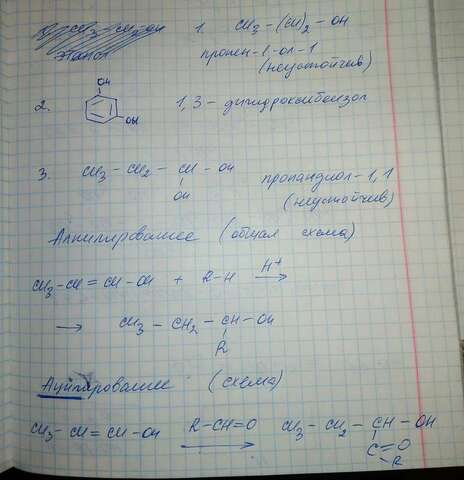 1. CH3 – (CH)2 – OH
этанол
пропен-1-ол-1
(неустойчив)
OH
2.
OH
1,3 – дигидроксибензол
3. CH3 – CH2 – CH – OH
OH
пропандиол-1,1
(неустойчив)
Алкилирование (общая схема)
CH3-CH=CH-OH + R-H H+ →
→ CH3 – CH2 – CH – OH
R
Ацилирование (схема)
CH3-CH=CH-OH R-CH=O → CH3-CH2-CH-OH
C=O
R